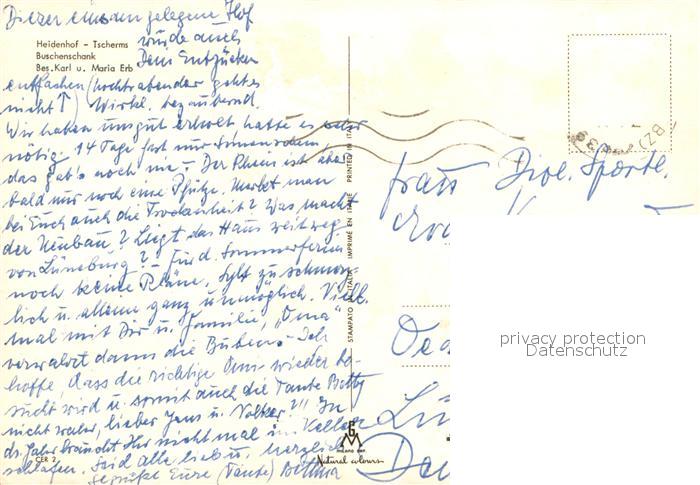 Dieser einsam gelegene Hof
würde auch
Heidenhof - Tscherms
Buschenschank
Bes. Karl u. Maria Erb
Dein Entzücken
entfachen (hochtrabender geht es
nicht ↑) Wirkl. bezaubernd.
Wir haben uns gut erholt hatte es sehr
nötig. 14 Tage fast nur Sonnenschein
das gab's noch nie! Der Rhein ist aber
bald nur noch eine Pfütze. Merkt man
bei Euch auch die Trockenheit? Was macht
der Neubau? Liegt das Haus weit weg
von Lüneburg? Für d. Sommerferien
noch keine Pläne, Sylt zu
u. alleine ganz unmöglich. Viell.
mal mit Dir u. Familie, "Oma"
verwahrt dann die Buben. Ich
hoffe, dass die richtige Omi wieder be-
sucht wird u. somit auch die Tante Betty
nicht wahr, lieber Jens u. Volker?!! In
ds. Jahr braucht Ihr nicht mal im Keller
schlafen. Seid alle lieb u. herzlich
gegrüßt Eure (Tante) Bettina
CER 2
STAMPATO IN ITALIA IMPRIMÉ EN ITALIE PRINTED IN ITALY
G
M
MILANO DEP.
Natural colours
BZ)
Frau Dipl. Sportl.
privacy protection
Datenschutz
Lü